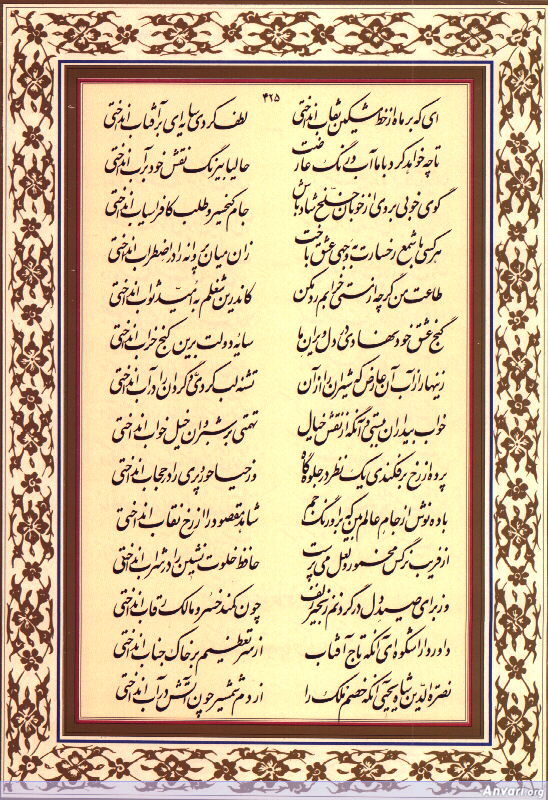 ۴۲۵
ای که بر ماه از خط مشکین نقاب انداختی لطف کردی سایه‌ای بر آفتاب انداختی
تا چه خواهد کرد با ما آب و رنگ عارضت حالیا نیرنگ نقش خود بر آب انداختی
گوی خوبی بردی از خوبان خلخ شاد باش جام کیخسرو طلب کافراسیاب انداختی
هر کسی با شمع رخسارت به وجهی عشق باخت زان میان پروانه را در اضطراب انداختی
طاعت من گرچه از مستی خرابم رد مکن کاندرین شغلم به امید ثواب انداختی
گنج عشق خود نهادی در دل ویران ما سایه دولت برین کنج خراب انداختی
زینهار از آب آن عارض که شیران را از آن تشنه لب کردی و گردان را در آب انداختی
خواب بیداران ببستی وآنگه از نقش خیال تهمتی بر شبروان خیل خواب انداختی
پرده از رخ برفکندی یک نظر در جلوه گاه وز حیا حور و پری را در حجاب انداختی
باده نوش از جام عالم بین که بر اورنگ جم شاهد مقصود را از رخ نقاب انداختی
از فریب نرگس مخمور و لعل می پرست حافظ خلوت نشین را در شراب انداختی
وز برای صید دل در گردنم زنجیر زلف چون کمند خسرو مالک رقاب انداختی
داور دارا شکوه ای آنکه تاج آفتاب از سر تعظیم بر خاک جناب انداختی
نصرة الدین شاه یحیی آنکه خصم ملک را از دم شمشیر چون آتش در آب انداختی
Anvari.org